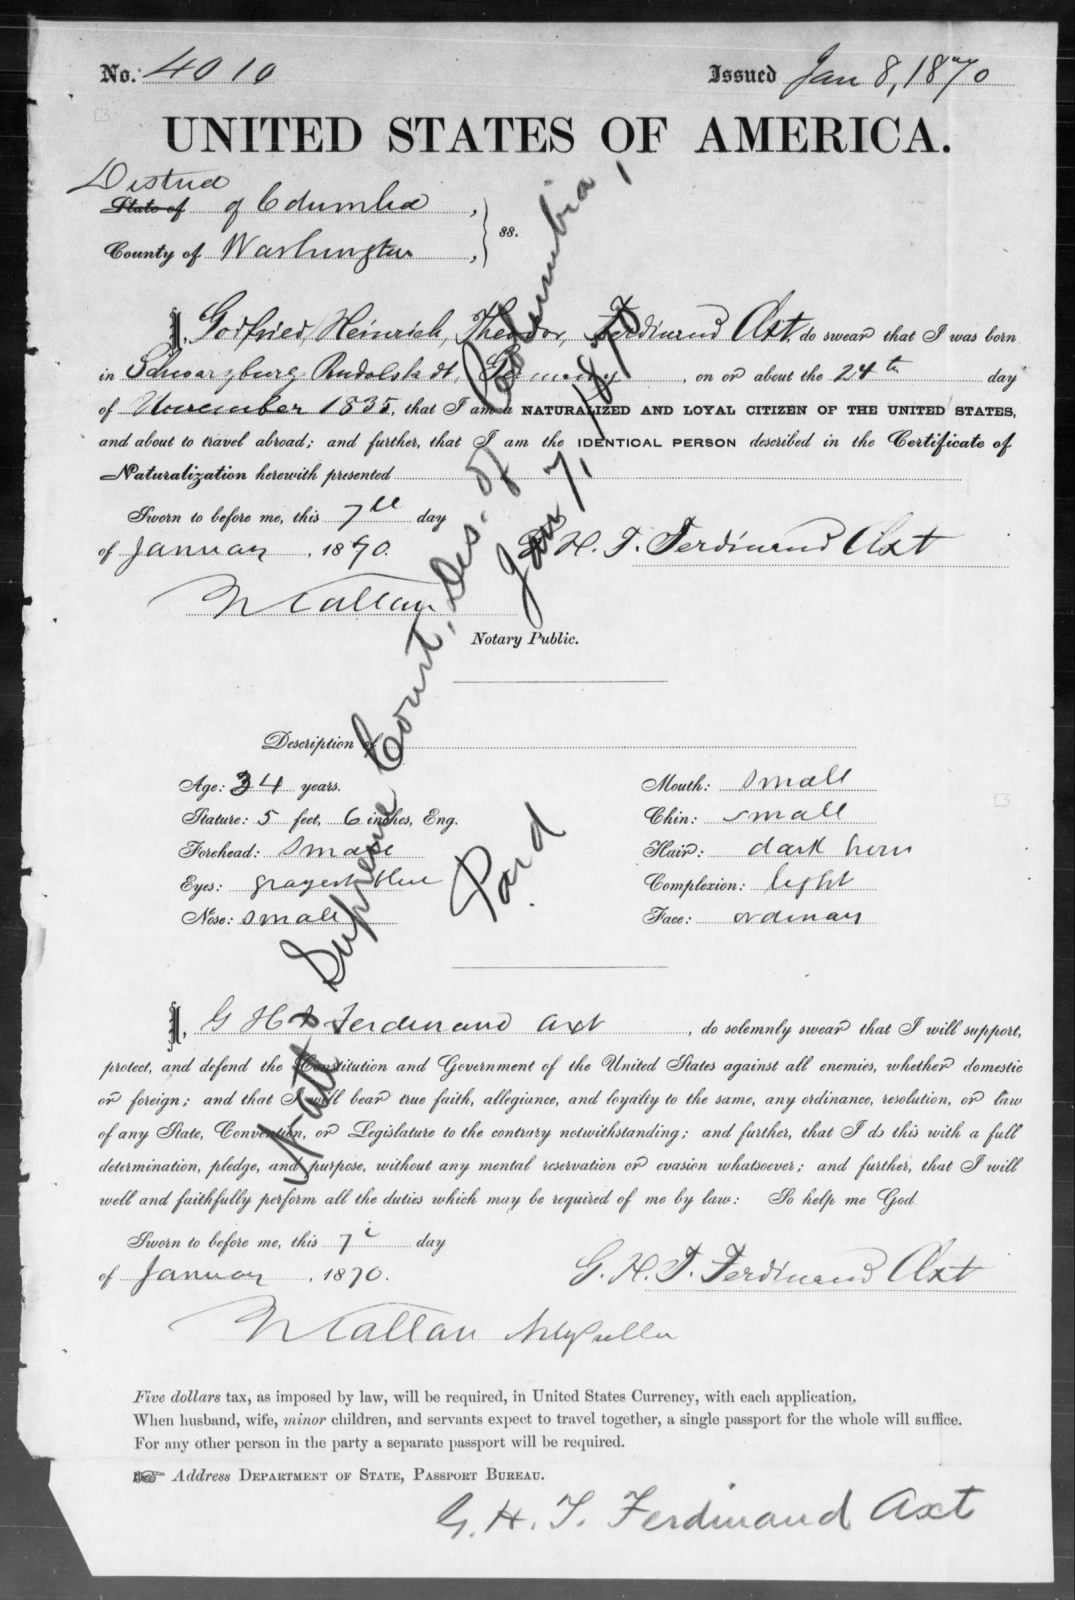 No. 4010 Issued Jan 8, 1870
UNITED STATES OF AMERICA.
District
State of of Columbia, } ss.
County of Washington,
I, Godfried, Heinrich, Theodor, Ferdinand Axt, do swear that I was born
in Schwarzburg Rudolstadt, Germany, on or about the 24th day
of November 1835, that I am a NATURALIZED AND LOYAL CITIZEN OF THE UNITED STATES,
and about to travel abroad; and further, that I am the IDENTICAL PERSON described in the Certificate of
Naturalization herewith presented
Sworn to before me, this 7th day
of January, 1870. G. H. T. Ferdinand Axt
N Callan
Notary Public.
Natd Supreme Court, Dis. of Columbia,
Jan 7, 1870
Description of
Age: 34 years. Mouth: small
Stature: 5 feet, 6 inches, Eng. Chin: small
Forehead: small Hair: dark
Eyes: blue Complexion: light
Nose: small Face: ordinary
Paid
I, G H T Ferdinand Axt, do solemnly swear that I will support,
protect, and defend the Constitution and Government of the United States against all enemies, whether domestic
or foreign; and that I will bear true faith, allegiance, and loyalty to the same, any ordinance, resolution, or law
of any State, Convention, or Legislature to the contrary notwithstanding; and further, that I do this with a full
determination, pledge, and purpose, without any mental reservation or evasion whatsoever; and further, that I will
well and faithfully perform all the duties which may be required of me by law: So help me God
Sworn to before me, this 7 day
of January, 1870. G. H. T. Ferdinand Axt
N Callan
Five dollars tax, as imposed by law, will be required, in United States Currency, with each application.
When husband, wife, minor children, and servants expect to travel together, a single passport for the whole will suffice.
For any other person in the party a separate passport will be required.
Address DEPARTMENT OF STATE, PASSPORT BUREAU.
G. H. T. Ferdinand Axt